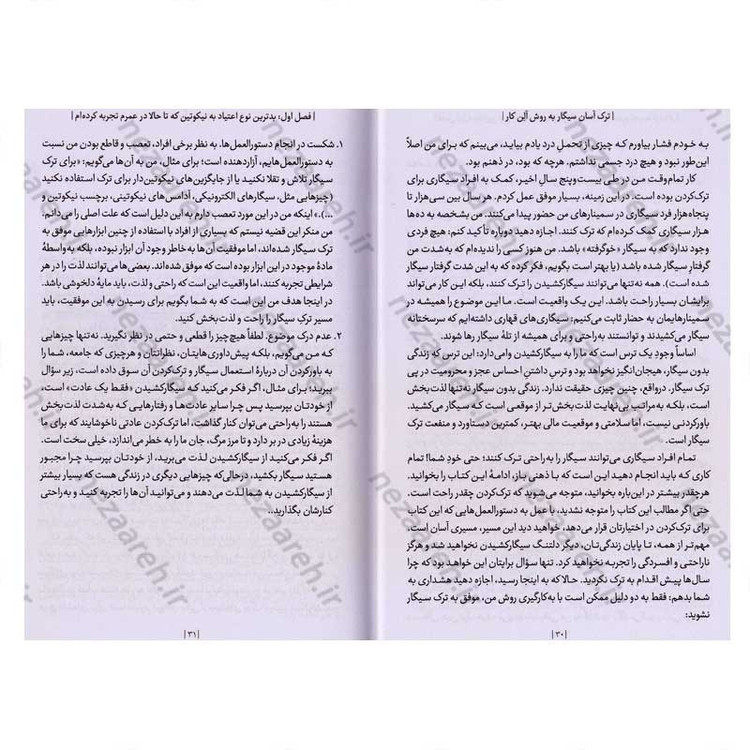 | ترک آسان سیگار به روش آلن کار |
به خودم فشار بیاورم که چیزی از تحمل درد یادم بیاید، می‌بینم که برای من اصلاً
این‌طور نبود و هیچ درد جسمی نداشتم. هرچه که بود، در ذهنم بود.
کار تمام‌وقت من در طی بیست‌وپنج سال اخیر، کمک به افراد سیگاری برای
ترک‌کردن بوده است. در این زمینه، بسیار موفق عمل کردم. هر سال بین سی‌هزار تا
پنجاه‌هزار فرد سیگاری در سمینارهای من حضور پیدا می‌کنند. من بشخصه به ده‌ها
هزار سیگاری کمک کرده‌ام که ترک کنند. اجازه دهید دوباره تأکید کنم؛ هیچ فردی
وجود ندارد که به سیگار «خوگرفته» باشد. من هنوز کسی را ندیده‌ام که به‌شدت من
گرفتار سیگار شده باشد (یا بهتر است بگویم، فکر کرده که به این شدت گرفتار سیگار
شده است). همه نه‌تنها می‌توانند سیگارکشیدن را ترک کنند، بلکه این کار می‌تواند
برایشان بسیار راحت باشد. این یک واقعیت است. ما این موضوع را همیشه در
سمینارهایمان به حضار ثابت می‌کنیم؛ سیگاری‌های قهاری داشته‌ایم که سرسختانه
سیگار می‌کشیدند و توانستند به‌راحتی و برای همیشه از تلهٔ سیگار رها شوند.
اساساً وجود یک ترس است که ما را به سیگارکشیدن وامی‌دارد؛ این ترس که زندگی
بدون سیگار، هیجان‌انگیز نخواهد بود و ترس داشتن احساس عجز و محرومیت در پی
ترک سیگار. درواقع، چنین چیزی حقیقت ندارد. زندگی بدون سیگار نه‌تنها لذت‌بخش
است، بلکه به‌مراتب بی‌نهایت لذت‌بخش‌تر از موقعی است که سیگار می‌کشید.
باورکردنی نیست، اما سلامتی و موقعیت مالی بهتر، کمترین دستاورد و منفعت ترک
سیگار است.
تمام افراد سیگاری می‌توانند سیگار را به‌راحتی ترک کنند؛ حتی خود شما! تمام
کاری که باید انجام دهید این است که با ذهنی باز، ادامهٔ این کتاب را بخوانید.
هرچقدر بیشتر در این‌باره بخوانید، متوجه می‌شوید که ترک‌کردن چقدر راحت است.
حتی اگر مطالب این کتاب را متوجه نشدید، با عمل به دستورالعمل‌هایی که این کتاب
برای ترک‌کردن در اختیارتان قرار می‌دهد، خواهید دید این مسیر، مسیری آسان است.
مهم‌تر از همه، تا پایان زندگی‌تان، دیگر دلتنگ سیگارکشیدن نخواهید شد و هرگز
ناراحتی و افسردگی را تجربه نخواهید کرد. تنها سؤال برایتان این خواهد بود که چرا
سال‌ها پیش اقدام به ترک نکردید. حالا که به اینجا رسید، اجازه دهید هشداری به
شما بدهم: فقط به دو دلیل ممکن است با به‌کارگیری روش من، موفق به ترک سیگار
نشوید:
| ۳۰ |
| فصل اول؛ بدترین نوع اعتیاد به نیکوتین که تا حالا در عمرم تجربه کرده‌ام |
۱. شکست در انجام دستورالعمل‌ها. به نظر برخی افراد، تعصب و قاطع بودن من نسبت
به دستورالعمل‌هایم، آزاردهنده است؛ برای مثال، من به آن‌ها می‌گویم: «برای ترک
سیگار تلاش و تقلا نکنید یا از جایگزین‌های نیکوتین‌دار برای ترک استفاده نکنید
(چیزهایی مثل، سیگارهای الکترونیکی، آدامس‌های نیکوتینی، برچسب نیکوتین و
...).» اینکه من در این مورد تعصب دارم به این دلیل است که علت اصلی را می‌دانم.
من منکر این قضیه نیستم که بسیاری از افراد با استفاده از چنین ابزارهایی موفق به
ترک سیگار شده‌اند، اما موفقیت آن‌ها به خاطر وجود آن ابزار نبوده، بلکه به‌واسطهٔ
مادهٔ موجود در این ابزار بوده است که موفق شده‌اند. بعضی‌ها می‌توانند لذت را در هر
شرایطی تجربه کنند، اما واقعیت این است که راحتی و لذت، باید مایهٔ دلخوشی باشد.
در اینجا هدف من این است که به شما بگویم برای رسیدن به این موفقیت، باید
مسیر ترک سیگار را راحت و لذت‌بخش کنید.
۲. عدم درک موضوع. لطفاً هیچ‌چیز را قطعی و حتمی در نظر نگیرید. نه‌تنها چیزهایی
که من می‌گویم، بلکه پیش‌داوری‌هایتان، نظراتتان و هرچیزی که جامعه، شما را
به باورکردن آن دربارهٔ استعمال سیگار و ترک‌کردن آن سوق داده است، زیر سؤال
ببرید؛ برای مثال، اگر فکر می‌کنید که سیگارکشیدن «فقط یک عادت» است،
از خودتان بپرسید پس چرا سایر عادت‌ها و رفتارهایی که به‌شدت لذت‌بخش
هستند را به‌راحتی می‌توان کنار گذاشت، اما ترک‌کردن عادتی ناخوشایند که برای ما
هزینهٔ زیادی در بر دارد و تا مرز مرگ، جان ما را به خطر می‌اندازد، خیلی سخت است.
اگر فکر می‌کنید از سیگارکشیدن لذت می‌برید، از خودتان بپرسید چرا مجبور
هستید سیگار بکشید، درحالی‌که چیزهایی دیگری در زندگی هست که بسیار بیشتر
از سیگارکشیدن به شما لذت می‌دهند و می‌توانید آن‌ها را تجربه کنید و به‌راحتی
کنارشان بگذارید...
| ۳۱ |
nezaareh.ir